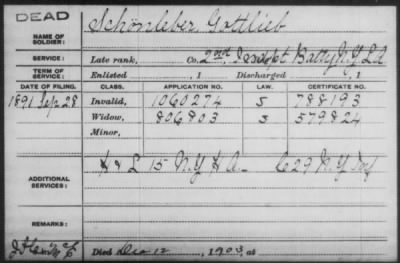 DEAD
NAME OF SOLDIER: Schönleber Gottlieb
SERVICE: Late rank, Co. 2nd, Indpt Batty N.Y. L.A.
TERM OF SERVICE: Enlisted , 1 Discharged , 1
DATE OF FILING. CLASS. APPLICATION NO. LAW. CERTIFICATE NO.
1891 Sep 28 Invalid, 1060274 S 788193
Widow, 806803 S 579824
Minor,
ADDITIONAL SERVICES: & L 15 N.Y. H A. C 29 N.Y. Inf
REMARKS:
Died Dec 12, 1903, at